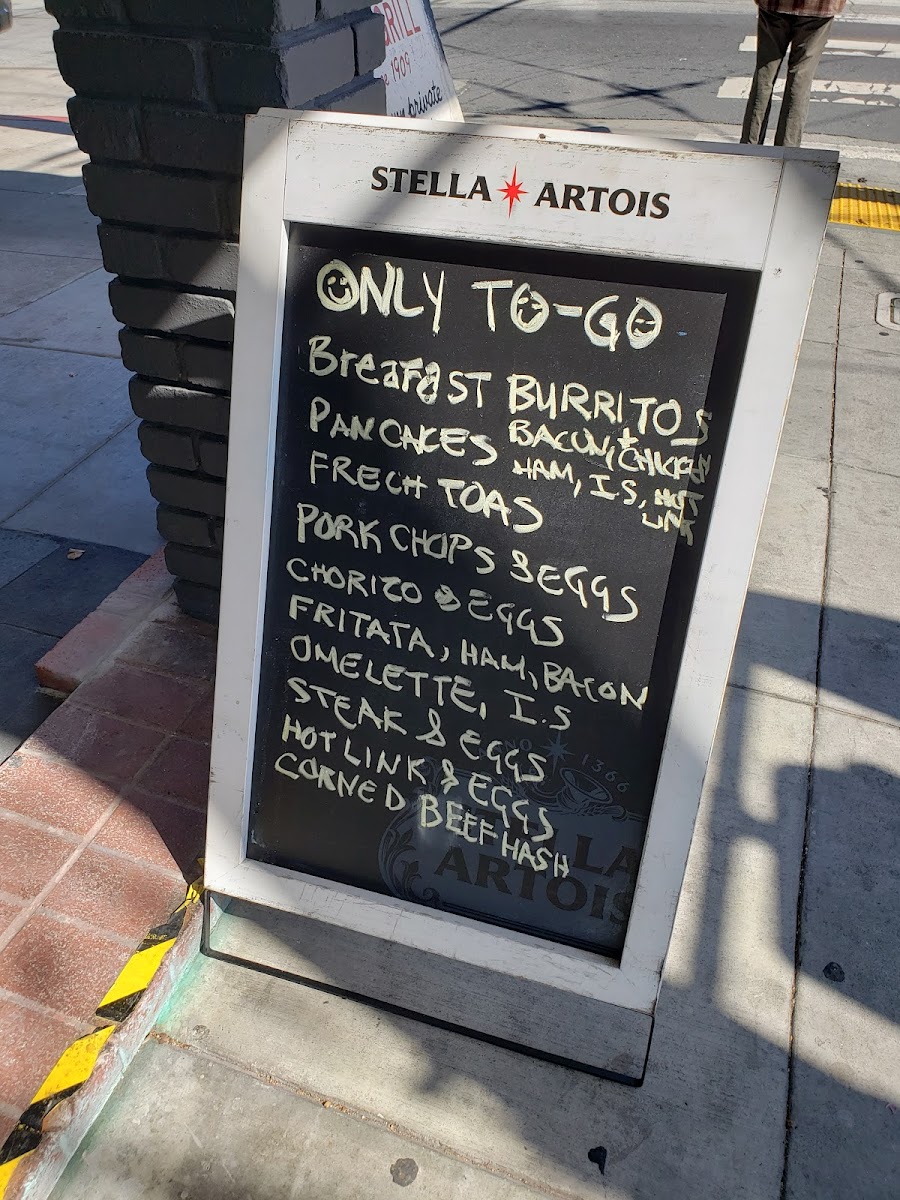 RILL
e 1909
private
STELLA ARTOIS
ONLY TO-GO
BreaFaST BURRITOS
PANCAKES BACON, CHICKEN
HAM, I.S, HOT
LINK
FRECH TOAS
PORK CHOPS & EGGS
CHORIZO & EGGS
FRITATA, HAM, BACON
OMELETTE, I.S
STEAK & EGGS
HOT LINK & EGGS
CORNED BEEF HASH
1366
ARTOIS